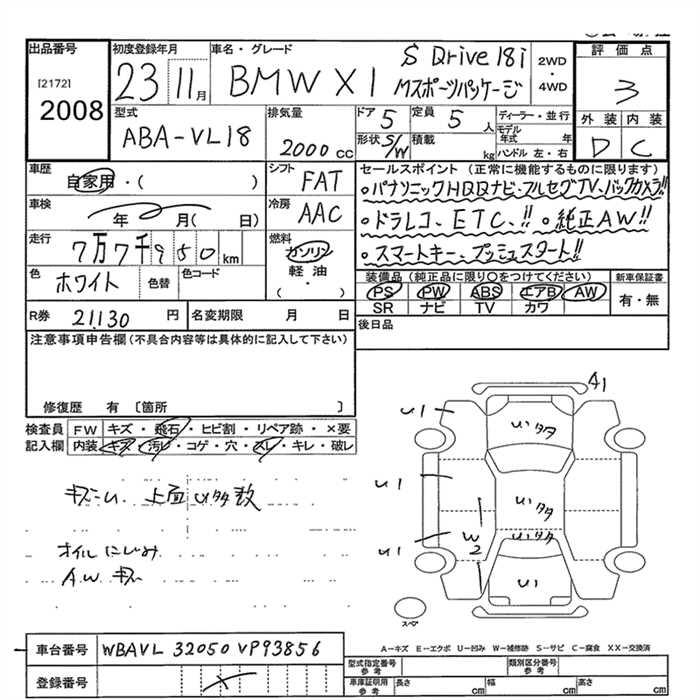 出品番号 初度登録年月 車名・グレード S Drive 18i 2WD・4WD 評価点
[2172] 23 11月 BMW X1 Mスポーツパッケージ 3
2008
型式 排気量 ドア 5 定員 5人 ディーラー・並行 外装 内装
ABA-VL18 2000cc 形状 S/W 積載 kg モデル年式 年 D C
ハンドル 左・右
車歴 シフト セールスポイント (正常に機能するものに限ります)
自家用・( ) FAT ・パナソニックHDDナビ・フルセグTV、バックカメラ!!
車検 年 月( 日) 冷房 AAC ・ドラレコ、ETC、!! ・純正AW!!
走行 7万7千950km 燃料 ガソリン・軽油・( ) ・スマートキー、プッシュスタート!!
色 ホワイト 色替 色コード 装備品 (純正品に限り○をつけてください) 新車保証書
PS PW ABS エアB AW 有・無
SR ナビ TV カワ
R券 21,130円 名変期限 月 日 後日品
注意事項申告欄(不具合内容等は具体的に記入して下さい)
修復歴 有 [箇所 ]
検査員記入欄 FW キズ・飛石・ヒビ割・リペア跡・×要
内装 キズ・汚レ・コゲ・穴・スレ・キレ・破レ
キズU 上面 U多数
オイルにじみ
A.W キズ
A1
U1 Uい多タ
U1 Uい多タ
U1 W2 Uい多タ
U1
S
A-キズ E-エクボ U-凹み W-補修跡 S-サビ C-腐食 XX-交換済
車台番号 WBAVL 32050 VP93856
登録番号
型式指定番号 参考 類別区分番号 参考
車庫証明用 参考 長さ cm 幅 cm 高さ cm